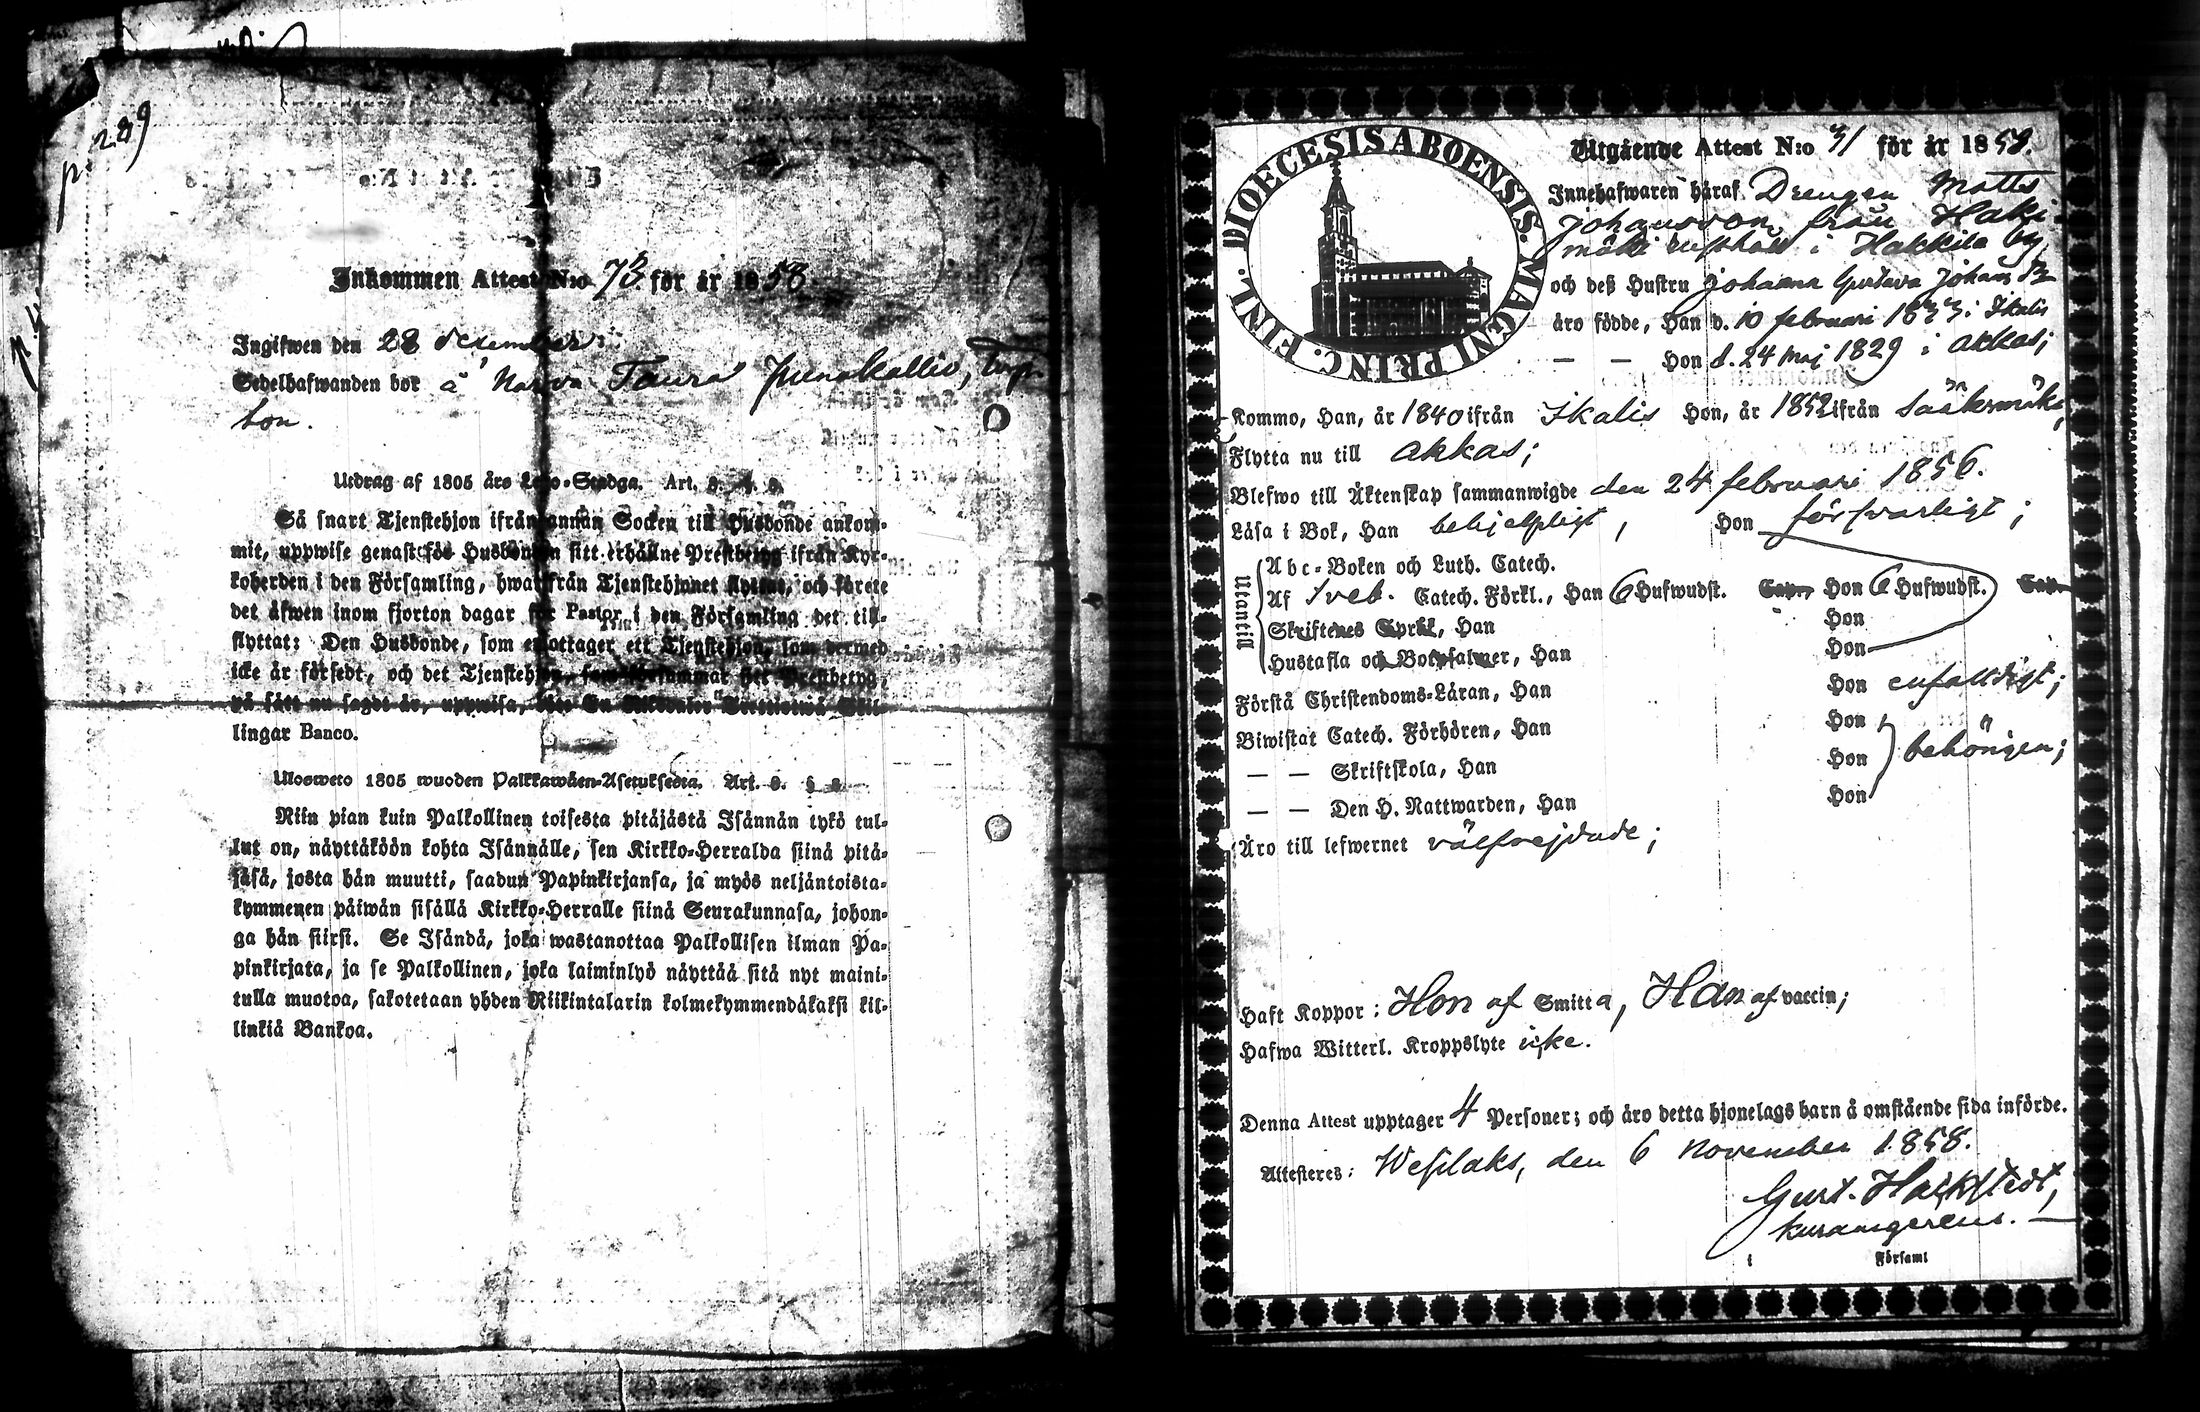 p. 289
Inkommen Attest N:o 73 för år 1858
Ingifwen den 28 December
Sedelhafwanden bor å Narva Taura Punakallio, torp-
ton.
Utdrag af 1805 års Lego-Stadga. Art. 3. § 3.
Så snart Tjenstehjon ifrån annan Socken till Husbonde ankom-
mit, uppwise genast för Husbonden sitt erhållne Prestbetyg ifrån Kyr-
koherden i den Församling, hwarifrån Tjenstehjonet flyttat, och förete
det äfwen inom fjorton dagar för Pastor i den Församling det till-
flyttat: Den Husbonde, som emottager ett Tjenstehjon, som dermed
icke är försedt, och det Tjenstehjon, som försummar det Prestbetyg,
på sätt nu sagdt är, uppwisa, böte En Riksdaler Trettiotwå Skil-
lingar Banco.
Ulosweto 1805 wuoden Palkkawäen-Asetuksesta. Art.
Niin pian kuin Palkollinen toisesta pitäjästä Isännän tykö tul-
lut on, näyttäköön kohta Isännälle, sen Kirkko-Herralda siinä pitä-
jäsä, josta hän muutti, saadun Papinkirjansa, ja myös neljäntoista-
kymmenen päiwän sisällä Kirkko-Herralle siinä Seurakunnasa, johon-
ga hän siirsi. Se Isändä, joka wastanottaa Palkollisen ilman Pa-
pinkirjata, ja se Palkollinen, joka laiminlyö näyttää sitä nyt maini-
tulla muotoa, sakotetaan yhden Riikintalarin kolmekymmendäkaksi kil-
linkiä Bankoa.
DIOECESIS ABOENSIS. MAGNI PRINC. FINL.
Utgående Attest N:o 31 för år 1858.
Innehafwaren häraf Drengen Matts
Johansson från Haki-
mäki rusthåll i Hakkila by
och deß Hustru Johanna Gustava Johans Dr
äro födde, Han d. 10 februari 1833 i Ikalis
— — Hon d. 24 Maj 1829 i Akkas;
Kommo, Han, år 1840 ifrån Ikalis Hon, år 1852 ifrån Sääksmäki,
Flytta nu till Akkas;
Blefwo till Äktenskap sammanwigde den 24 februari 1856.
Läsa i Bok, Han behjelpligt, Hon försvarligt;
Utantill
Abc-Boken och Luth. Catech.
Af Sveb. Catech. Förkl., Han 6 Hufwudst. Cap. Hon 6 Hufwudst. Cap.
Skriftenes Språk, Han Hon
Hustafla och Botpsalmer, Han Hon
Förstå Christendoms-Läran, Han Hon enfaldigt;
Biwistat Catech. Förhören, Han Hon
— — Skriftskola, Han Hon behörigen;
— — Den H. Nattwarden, Han Hon
Äro till lefwernet välfrejdade;
Haft Koppor: Hon af Smitta, Han af vaccin;
Hafwa Witterl. Kroppslyte icke.
Denna Attest upptager 4 Personer; och äro detta hjonelags barn å omstående sida införde.
Attesteres: Wesilaks, den 6 November 1858.
Gust. Hackstedt,
kuramgerens.
i Församl